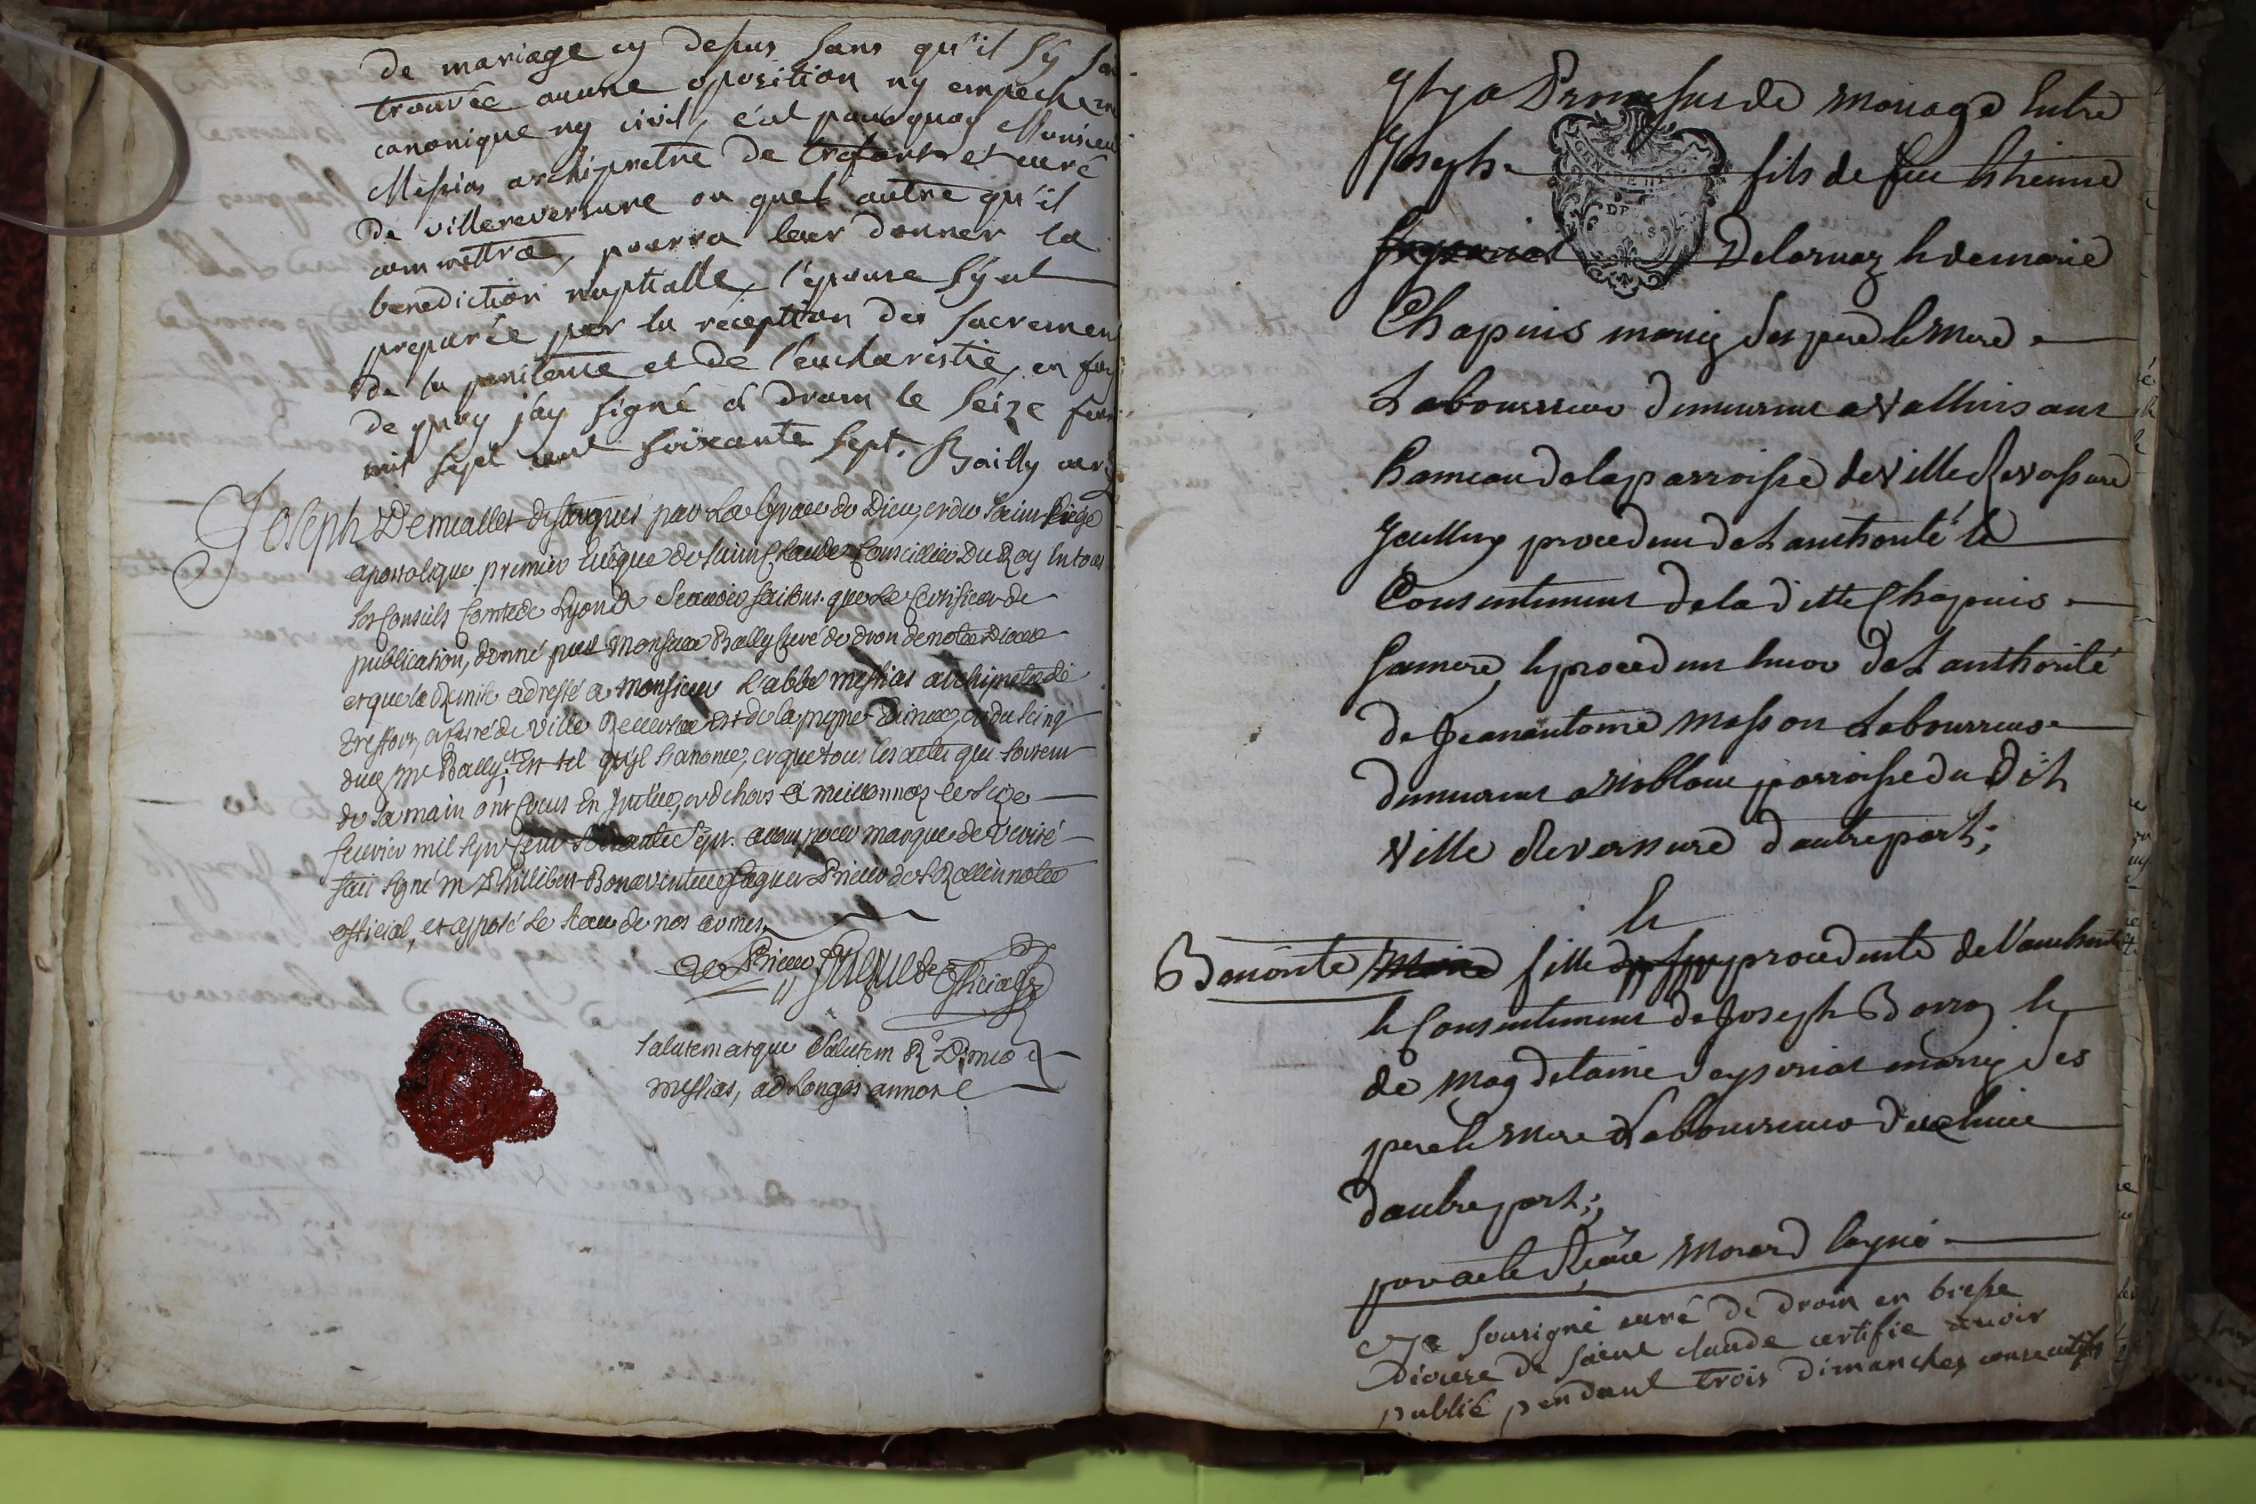 de mariage cy desus sans qu'il sy soit
trouvée aucune oposition ny empechem
canonique ny civil, c'est pourquoy Monsieur
Messias archiprêtre de trefort et curé
de villereversure ou quel autre qu'il
commettra, pourra leur donner la
benediction nuptialle, l'epouse s'y est
preparée par la reception des sacremens
de la penitence et de l'eucharistie, en foy
de quoy j'ay signé à drom le seize fevr
mil sept cent soixante sept. Bailly curé
Joseph Demeallet de fargues par La Grace de Dieu, et du saint Siège
apostolique premier Evêque de saint Claude Conseiller du Roy en tous
ses Conseils Comte de Lyon & Scavoir faisons que Le Certificat de
publication, donné par Monsieur Bailly Curé de dron de notre Diocese
et que la Remise adressé a Monsieur L'abbé messias archipretre de
treffort, et Curé de Ville Reversure est de la propre main et du seing
dud. Mr Bailly, Est tel qu'il s'anonce, et que tous les actes qui sortent
de sa main ont Cours En Justice, et dehors à meillonnaz le seize
fevrier mil sept Cent soixante sept. avons pour marque de Verité
fait signé M Phillibert Bonaventure faguet Prieur de St Rollin notre
official, et apposé le sceau de nos armes,
faguet de official
Salutem atque Salutem Rdo Dmno
messias, ad Longos annos
Il y a Promesses de Mariage Entre
Joseph fils de feu Etienne
Delornaz et de marie
Chapuis mariez ses pere et Mere
Laboureur demeurant a Vallin sans
hameau de la parroisse de Ville Reversure
Jcelluy procedant de L'authorité et
Consentement de la ditte Chapuis
sa mere, et procedant encor de L'authorité
de Jean antoine Masson Laboureur
demeurant a Noblens parroisse du dit
Ville Reversure d'autre part;
Et
Benoite fille procedente de l'authorité
et Consentement de Joseph Borroz et
de Magdelaine Seyseriat mariez ses
pere et Mere Laboureur
d'autre part;
par acte Reçu Morard Cayné
Je sousigné curé de drom en bresse
Diocese de saint claude certifie avoir
publié pendant trois dimanches consecutifs